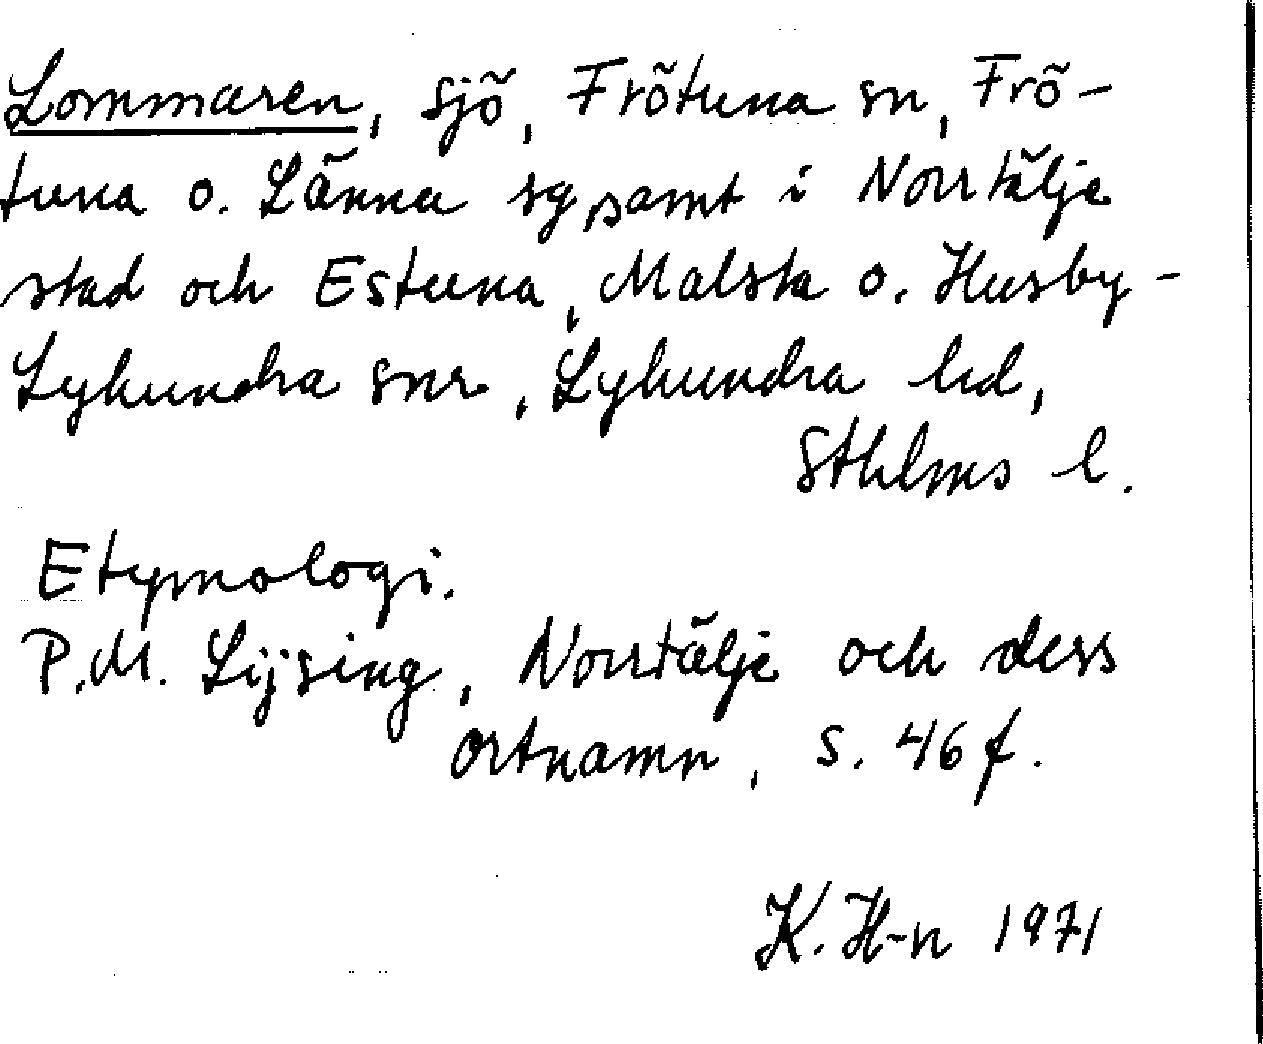 Lommaren, sjö, Frötuna sn, Frö-
tuna o. Länna sg, samt i Norrtälje
stad och Estuna, Malsta o. Husby-
Lyhundra snr, Lyhundra hd,
Sthlms l.
Etymologi.
P.M. Lijsing, Norrtälje och dess
ortnamn, s. 46 f.
K. H-n 1971